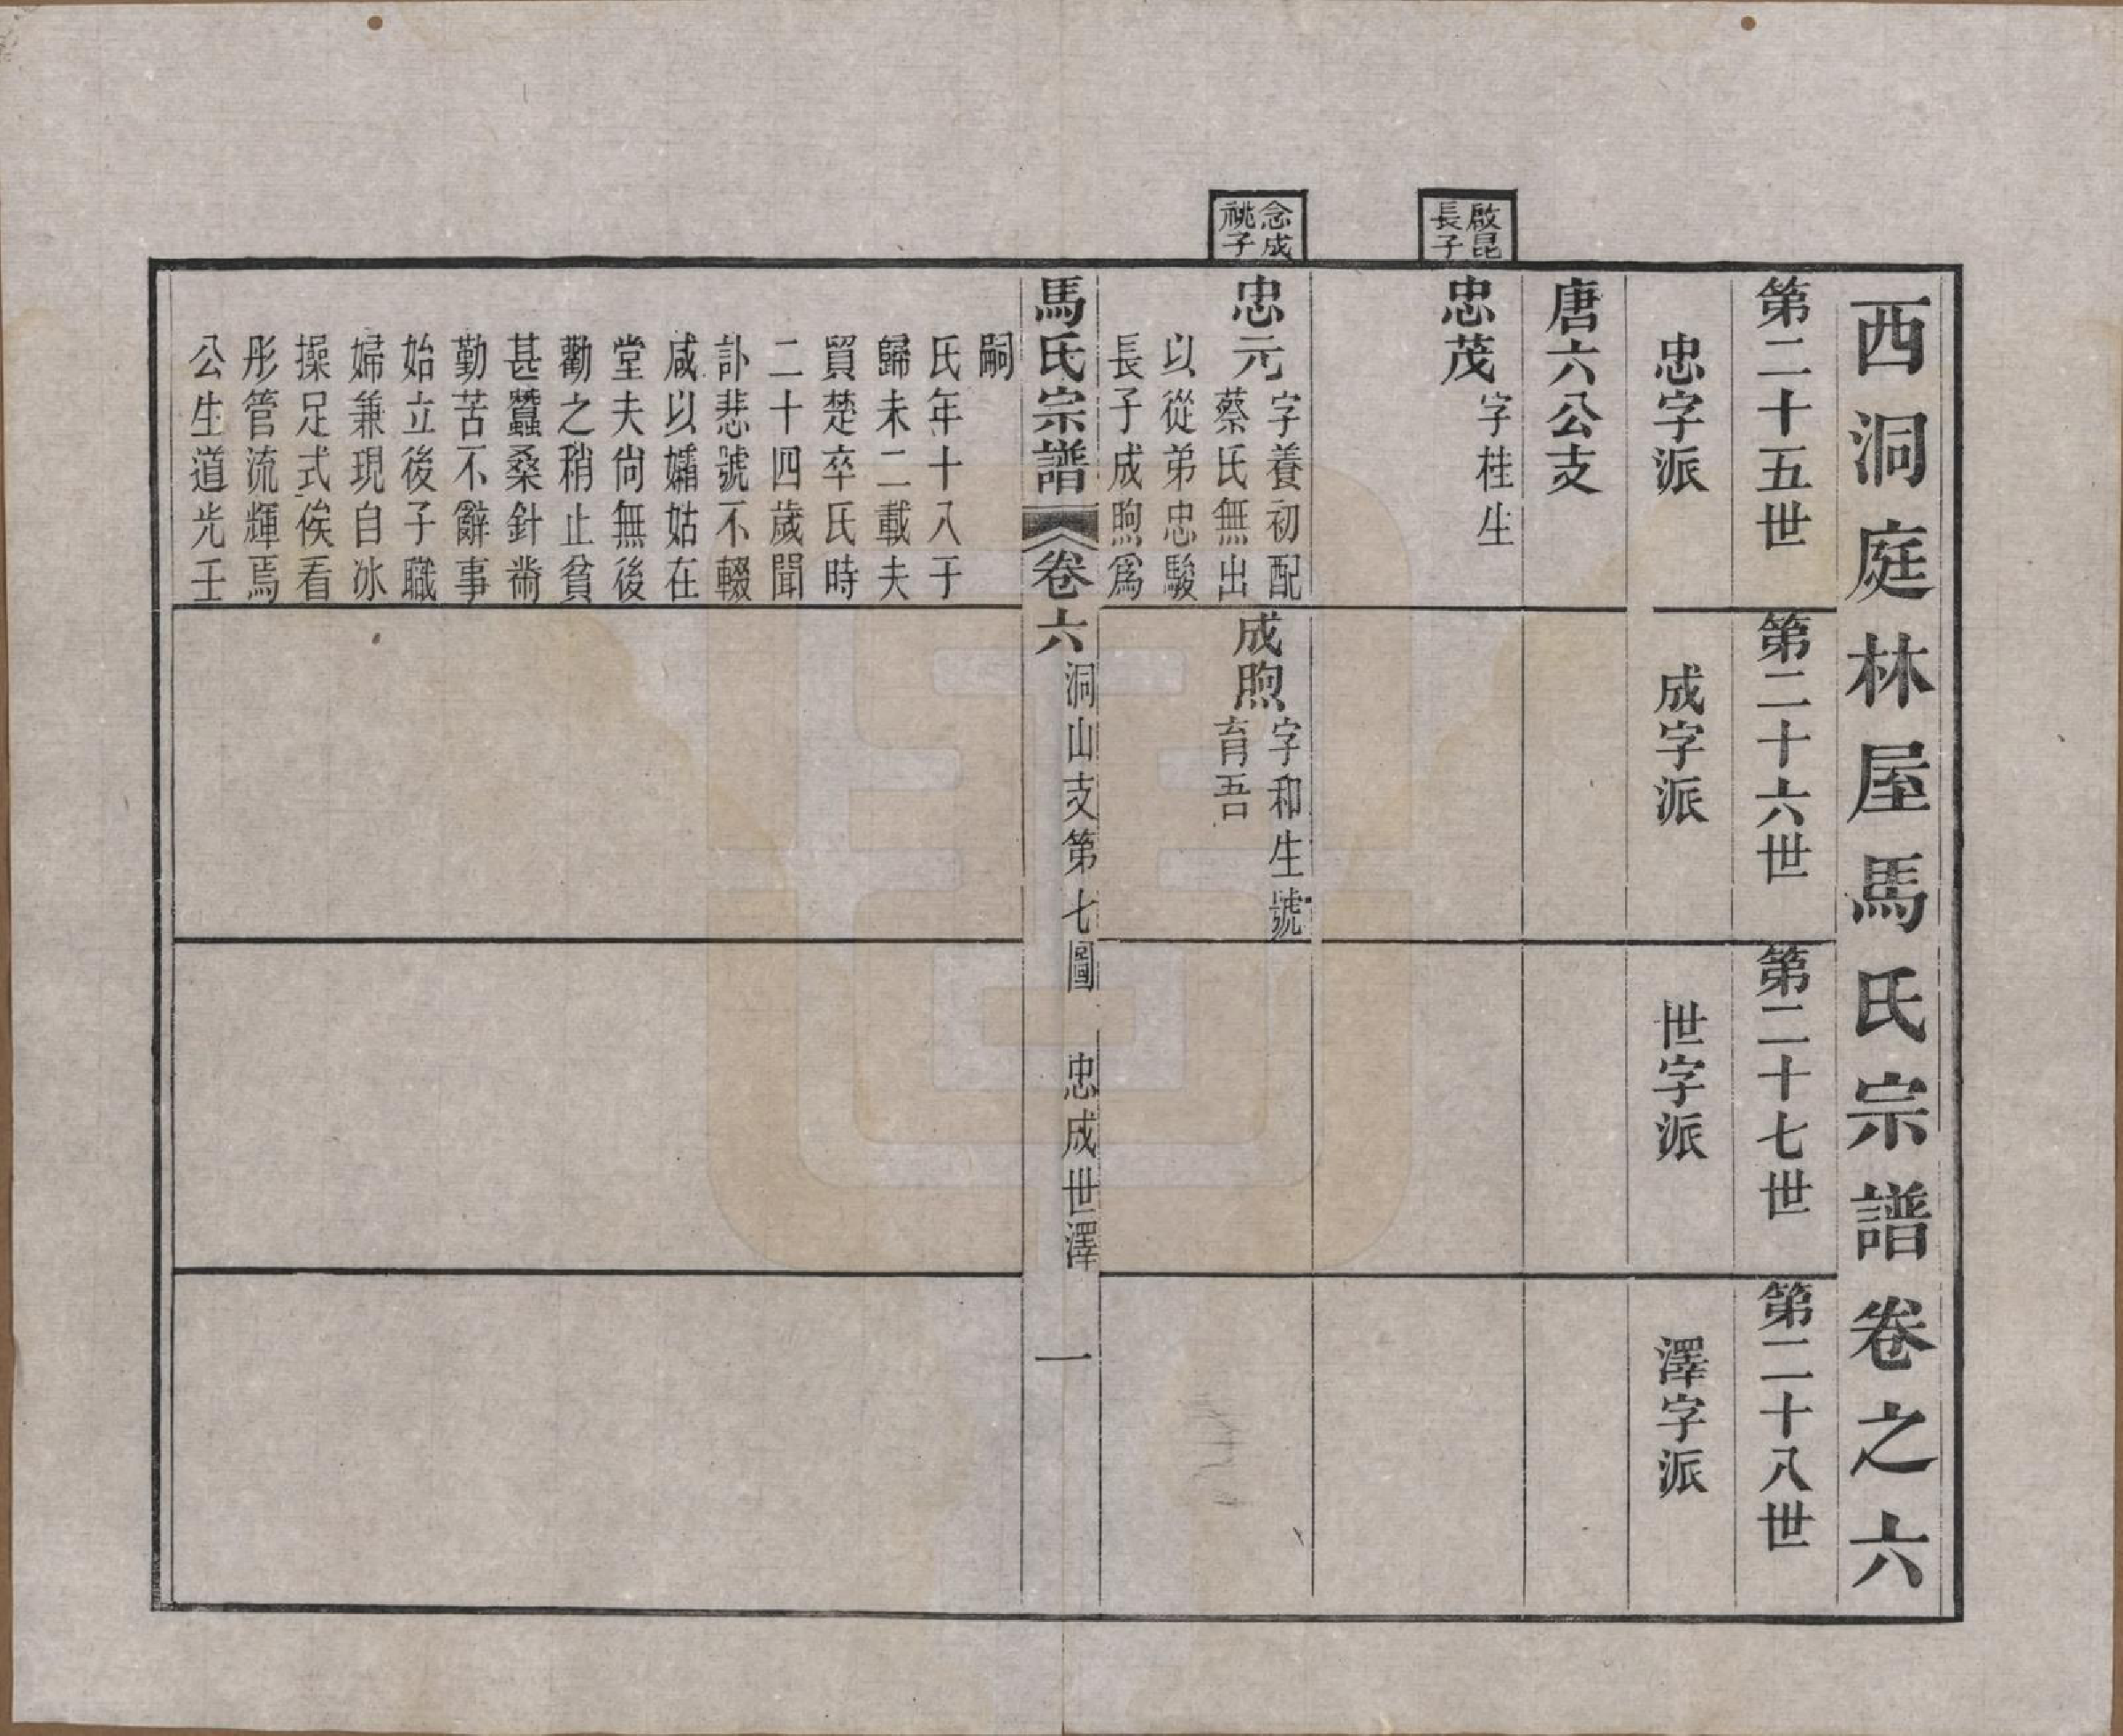 西洞庭林屋馬氏宗譜卷之六
第二十五世
第二十六世
第二十七世
第二十八世
忠字派
成字派
世字派
澤字派
唐六公支
啟昆
長子
忠茂
字桂生
念成
祧子
忠元
字養初配
蔡氏無出
以從弟忠駿
長子成煦爲
成煦
字和生號
育吾
馬氏宗譜
卷六
洞山支第七圖 忠成世澤
一
嗣
氏年十八于
歸未二載夫
貿楚卒氏時
二十四歲聞
訃悲號不輟
咸以孀姑在
堂夫尙無後
勸之稍止貧
甚蠶桑針黹
勤苦不辭事
始立後子職
婦兼現自冰
操足式俟看
彤管流輝焉
公生道光壬